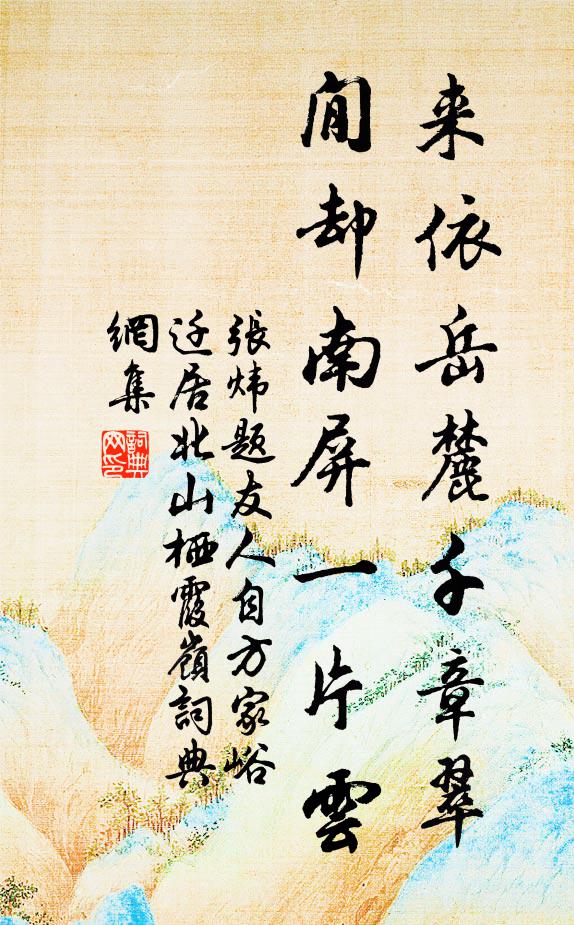 来依岳麓千章翠
閒却南屏一片雲
張煒题友人自方家峪
迁居北山栖霞嶺詞典
網集
詞典
网印